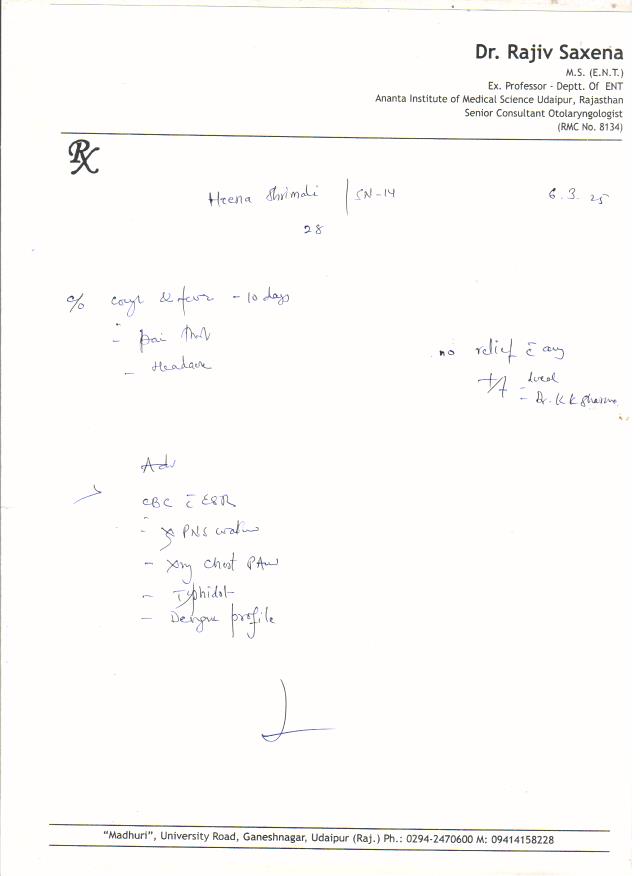 Dr. Rajiv Saxena
M.S. (E.N.T.)
Ex. Professor - Deptt. Of ENT
Ananta Institute of Medical Science Udaipur, Rajasthan
Senior Consultant Otolaryngologist
(RMC No. 8134)
Rx
Heena Shrimali | SN-14 6.3.25
28
c/o cough & fever - 10 days
- pain throat
- Headache
no relief c̄ any
- Dr. K K Sharma
Adv
CBC c̄ ESR
- X PNS water
- Xray Chest PA
- Typhidot
- Dengue profile
"Madhuri", University Road, Ganeshnagar, Udaipur (Raj.) Ph.: 0294-2470600 M: 09414158228